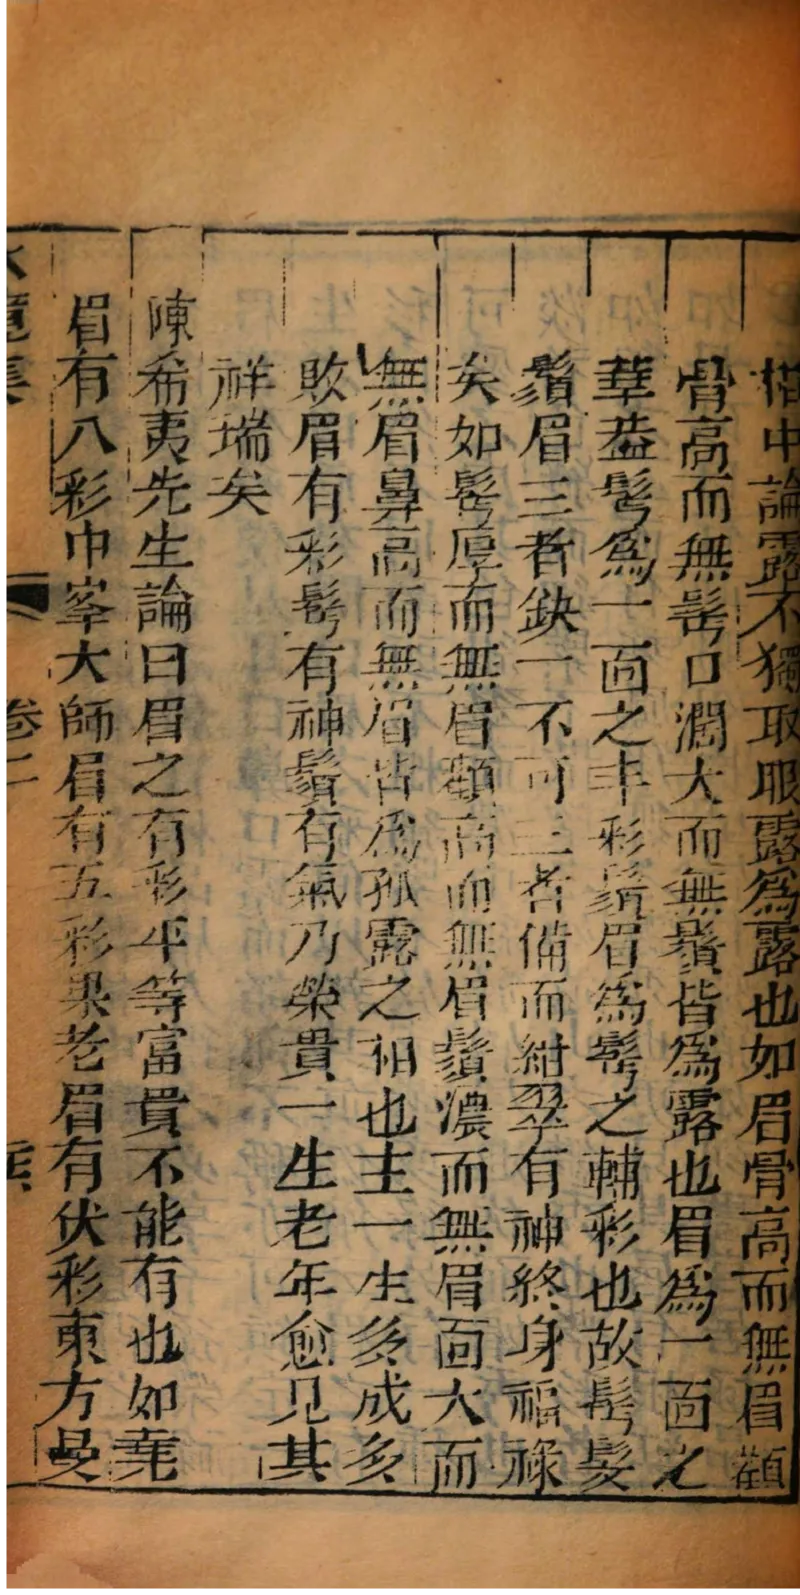 中論露不獨取眼露為露也如眉骨高而無眉顴
骨高而無髩口濶大而無鬚皆為露也眉為一面之
華葢髩為一面之丰彩鬚眉為髩之輔彩也故髩髮
鬚眉三者缺一不可三者備而紺翠有神終身福祿
矣如髩厚而無眉顴高而無眉鬚濃而無眉面大而
無眉鼻高而無眉皆為孤露之相也主一生多成多
敗眉有彩髩有神鬚有氣乃榮貴一生老年愈見其
祥瑞矣
陳希夷先生論曰眉之有彩平等富貴不能有也如堯
眉有八彩中峯大師眉有五彩果老眉有伏彩東方曼
水鏡集
卷二